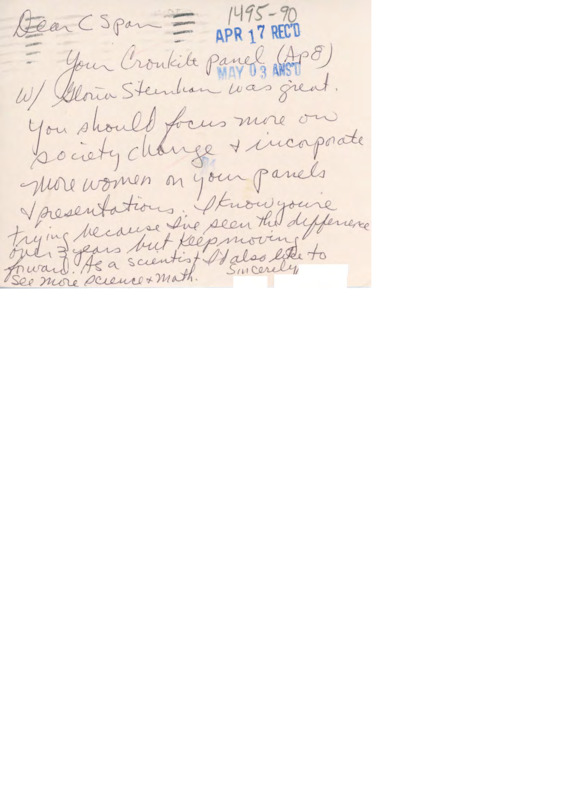 1495-90
Dear C Span
APR 17 REC'D
Your Cronkite panel (Ap8)
MAY 03 ANS'D
w/ Gloria Steinham was great.
You should focus more on
society change & incorporate
more women on your panels
& presentations. I know you're
trying because I've seen the difference
over 3 years but keep moving
forward. As a scientist I'd also like to
see more science & math.
Sincerely